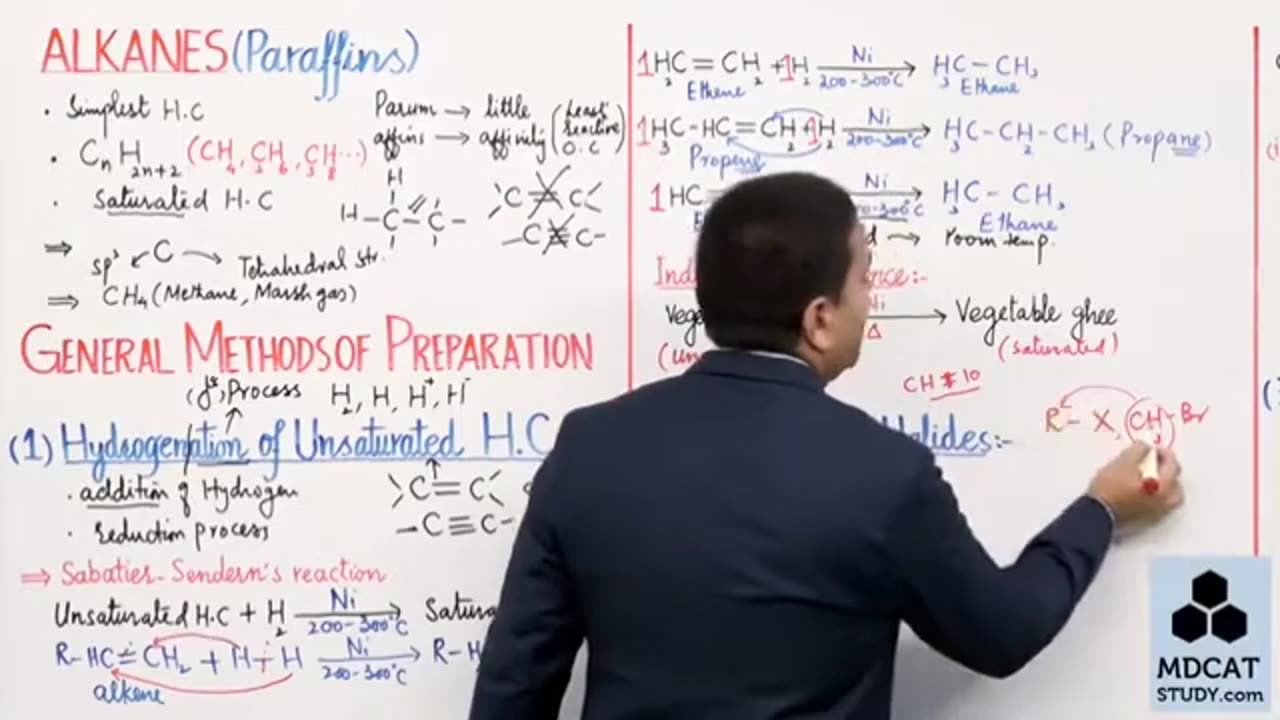 ALKANES (Paraffins)
• Simplest H.C
Parum → little
affins → affinity (least reactive O.C)
• CnH2n+2 (CH4, C2H6, C3H8...)
• Saturated H.C
H
H-C=C-
C=C
-C≡C-
⇒ sp³ ← C → Tetrahedral str.
⇒ CH4 (Methane, Marsh gas)
GENERAL METHODS OF PREPARATION
Process H2, H, H⁺, H⁻
(1) Hydrogenation of Unsaturated H.C
• addition of Hydrogen
C=C
• reduction process
-C≡C-
⇒ Sabatier-Sendern's reaction
Unsaturated H.C + H2 Ni 200-300°C → Satura
R-HC=CH2 + H-H Ni 200-300°C → R-H
alkene
1H2C=CH2 + 1H2 Ni 200-300°C → H3C-CH3
Ethene Ethane
1H3C-HC=CH2 + 1H2 Ni 200-300°C → H3C-CH2-CH3 (Propane)
Propene
1HC Ni 200-300°C → H3C-CH3
Ethane
→ room temp.
Ind nce:-
Vege Ni Δ → Vegetable ghee
(un (saturated)
CH ≠ 10
R-X, CH3-Br
Halides:-
MDCAT
STUDY.com